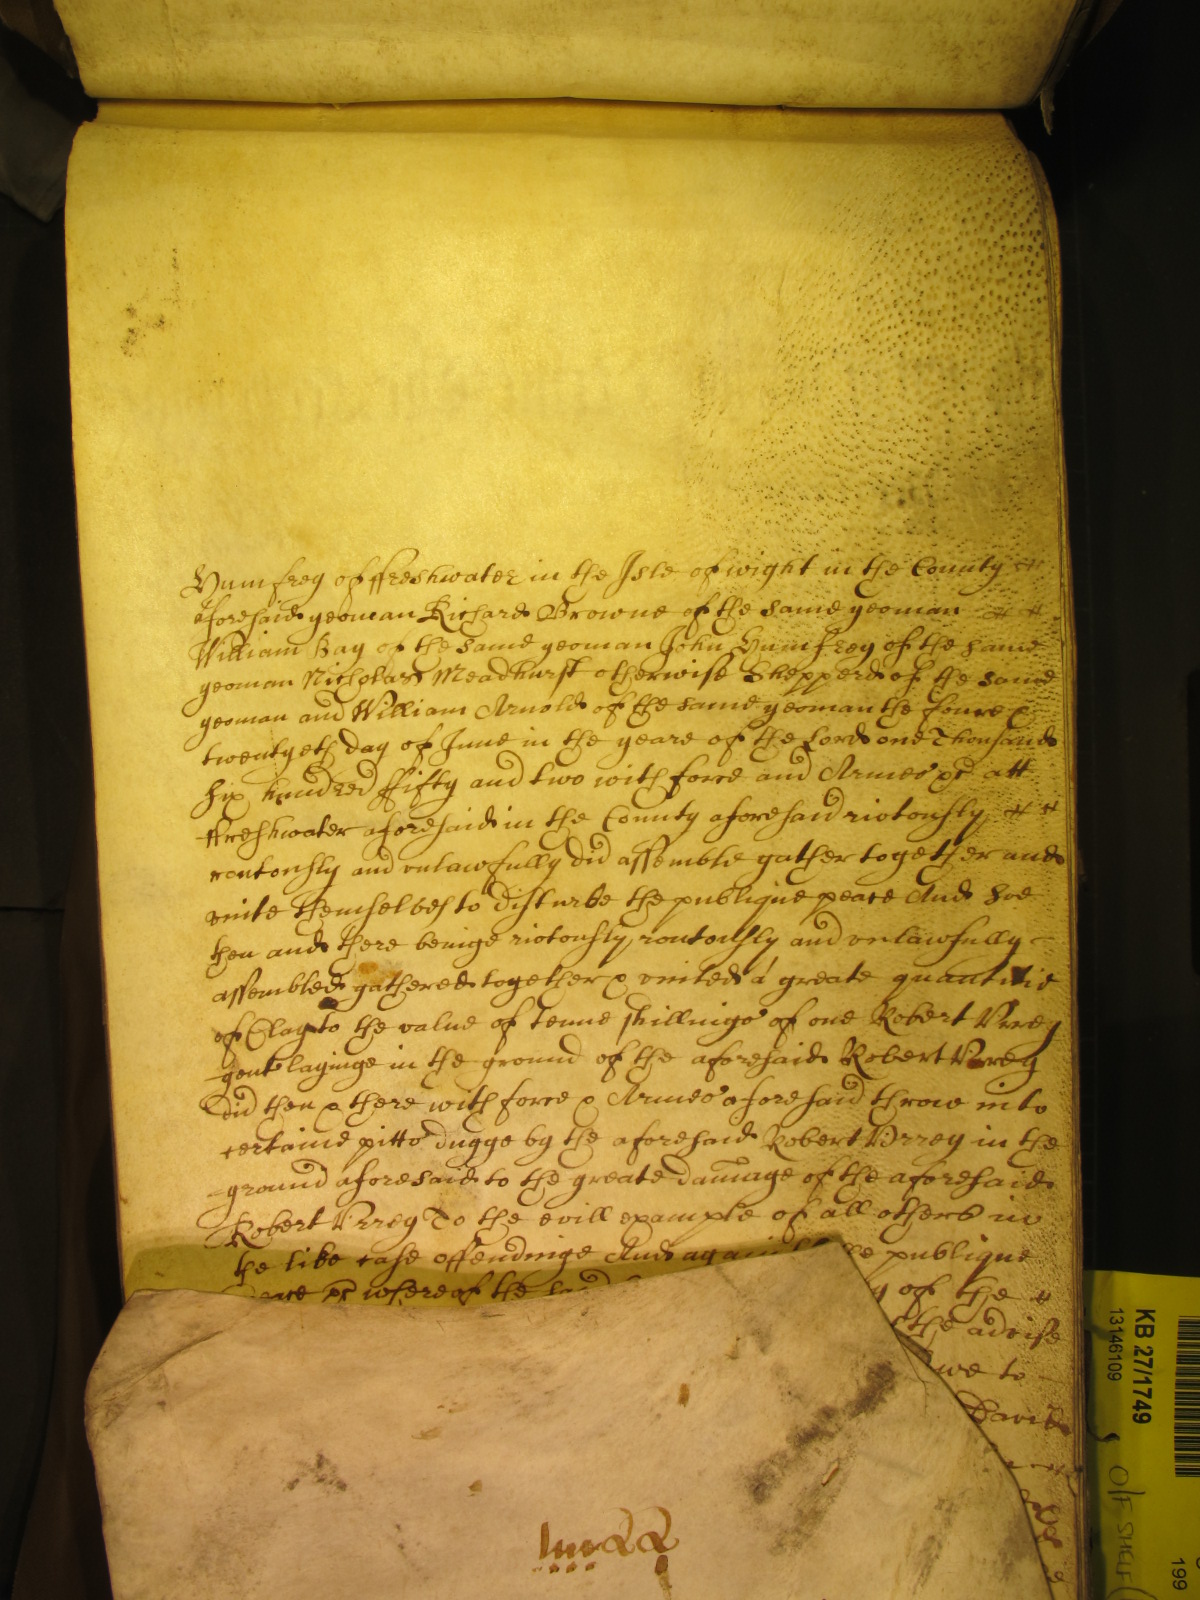 Humfrey of ffreshwater in the Isle of wight in the County
aforesaid yeoman Richard Browne of the same yeoman
William Hay of the same yeoman John Humfrey of the same
yeoman Nicholas Meadhurst otherwise Shepperd of the same
yeoman and William Arnold of the same yeoman the foure &
twentyeth day of June in the yeare of the Lord one Thousand
six hundred ffifty and two with force and Armes &c att
ffreshwater aforesaid in the County aforesaid riotously
routously and unlawfully did assemble gather together and
unite themselves to disturbe the publique peace And soe
then and there beinge riotously, routously and unlawfully
assembled gathered together & united a greate quantitie
of Clay to the value of tenne shillings of one Robert Urrey
gent layinge in the ground of the aforesaid Robert Urrey
did then & there with force & Armes aforesaid throw into
certaine pitts dugge by the aforesaid Robert Urrey in the
ground aforesaid to the greate damage of the aforesaid
Robert Urrey To the evill example of all others in
the like case offendinge And against the publique
peace &c whereof the said of the
the advise
we to
David
KB 27/1749
13146109
O/F SHELF
199